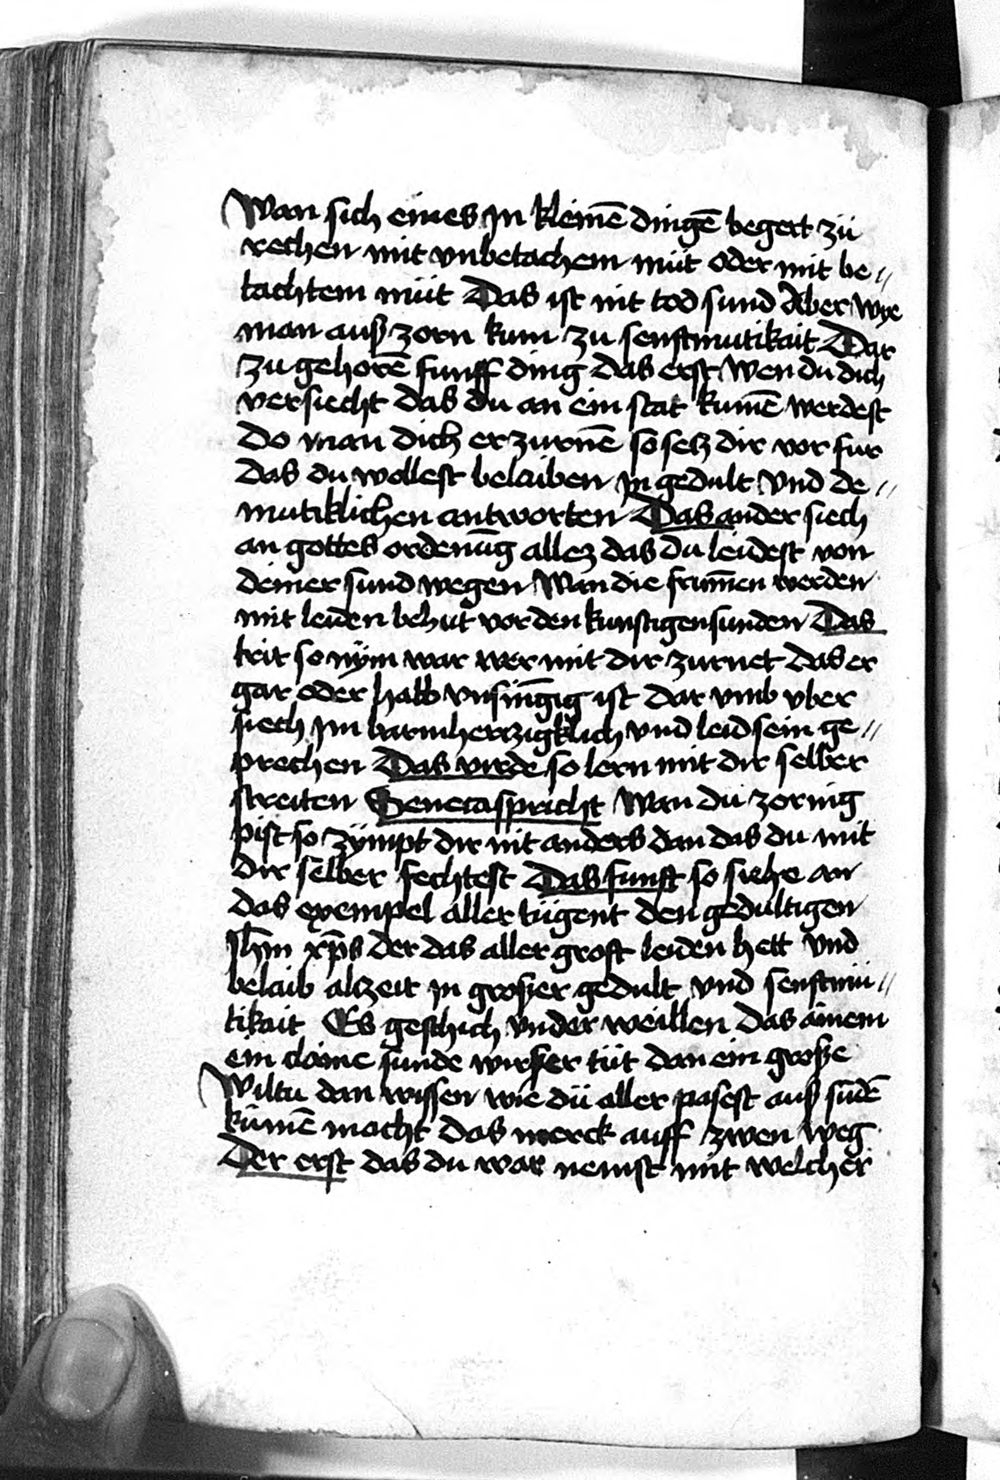 Wan sich eines jn kleinē dingē begert zü
rechen mit vnbetachem müt oder mit be //
tachtem müt Das ist nit tod sund Aber wye
man auß zorn kum zu senftmutikait Dar
zu gehorē funff ding das erst Wen du dich
versiecht das du an ein stat kumē werdest
Do man dich erzurnē so setz dir vor fur
das du wollest belaiben jn gedult vnd de //
mutiklichen antworten Das ander siech
an gottes ordenūg allez das du leidest von
deiner sund wegen Wan die frum̄en werden
mit leiden behut vor den kunftigen sunden Das
trit so nÿm war wer mit dir zurnet das er
gar oder halb vnsin̄gig ist dar vmb vber
siech jm barmherzigklich vnd leid sein ge //
prechen Das virde so lern mit dir selber
streiten Seneca spricht Wan du zornig
pist so zÿmpt dir nit anders dan das du mit
dir selber fechtest Das funft so siehe an
das exempel aller tügent den gedultigen
Jhm xp̄s der das aller grost leiden hett vnd
belaib alzeit jn grosser gedult vnd senftmü //
tikait Es geschich vnder weillen das ainem
ein claine sunde wirser tüt dan ein große
Wiltu dan wissen wie dü aller pasest auß sūdē
kumē macht das merck auff zwen weg
Der erst das du war nemst mit welcher